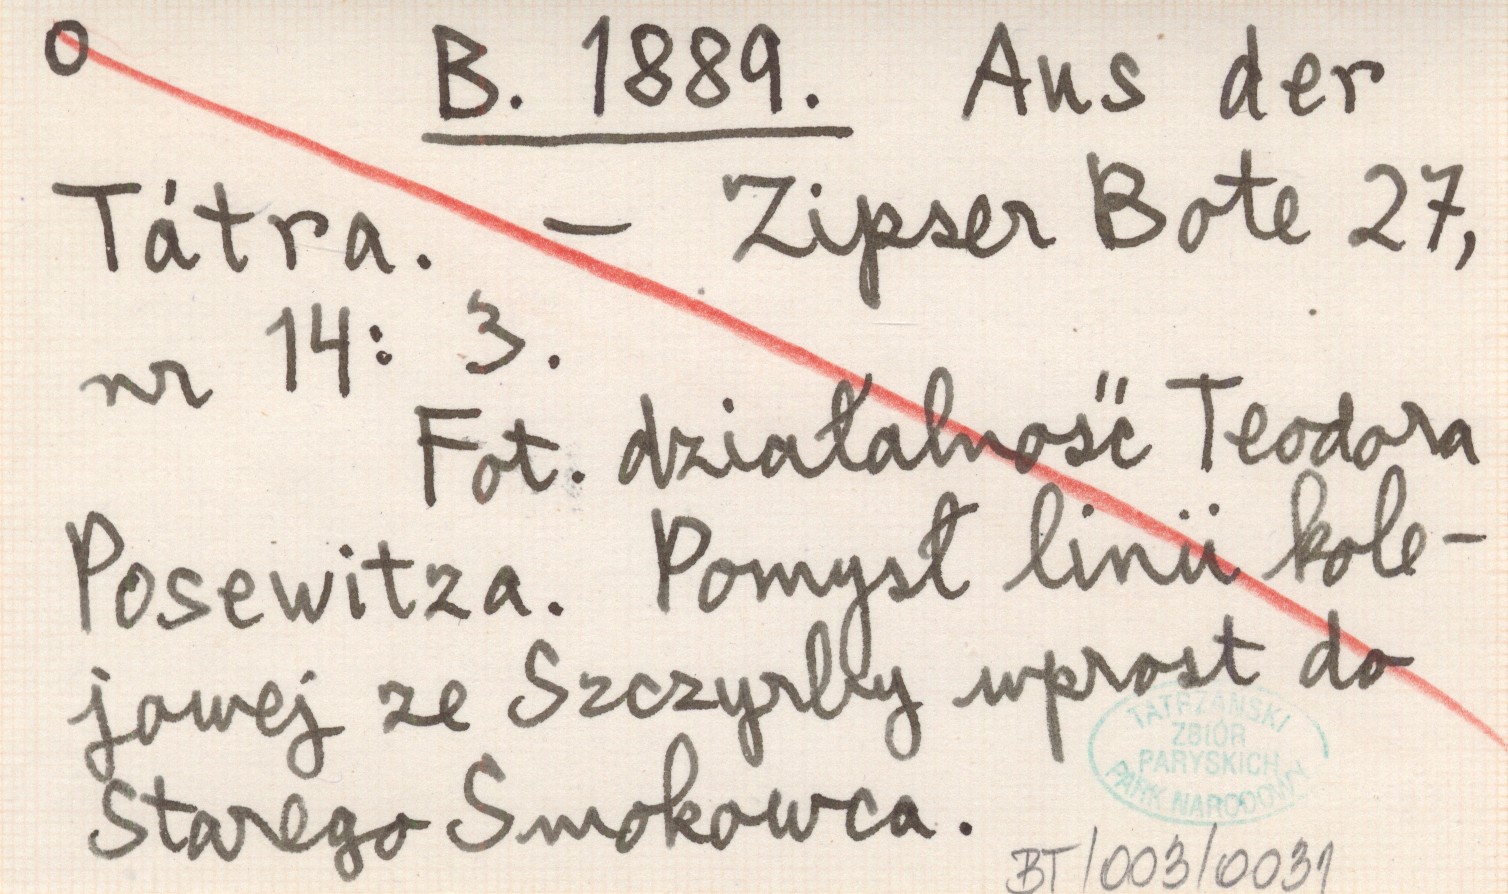 O B. 1889. Aus der
Tátra. – Zipser Bote 27,
nr 14: 3.
Fot. działalność Teodora
Posewitza. Pomysł linii kole-
jowej ze Szczyrby wprost do
Starego Smokowca.
TATRZAŃSKI
ZBIÓR
PARYSKICH
PARK NARODOWY
BT/003/0031